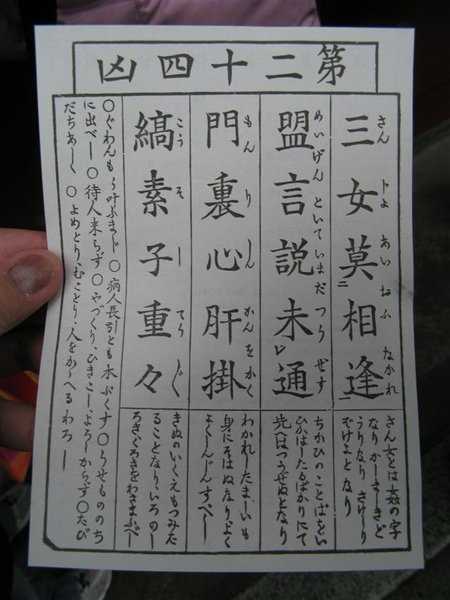 第二十四凶
三女莫相逢
さん ぢよ あい おふ なかれ
盟言説未通
めいげん といて いまだ つう ぜず
門裏心肝掛
もん り しん かん をかく
縞素子重々
こう そ し てう ぐ
さん女とは姦の字
なりかしましきど
うりなりさけし
でけよとなり
ちかひのことばをい
ひかはしたるばかりにて
先へはつうぜぬとなり
わかれしたましいも
身にそはぬなりよく
よくしんじんすべし
きぬのいくえもつみた
ることなりいろのし
ろきくろきをわきまふべし
〇ぐわんもう叶ふまじ〇病人長引とも本ぶくす〇うせもののち
に出べし〇待人来らず〇やづくり、ひきこし、よろしからず〇たび
だちあしく〇よめとり、むことり、人をかゝへるわろし